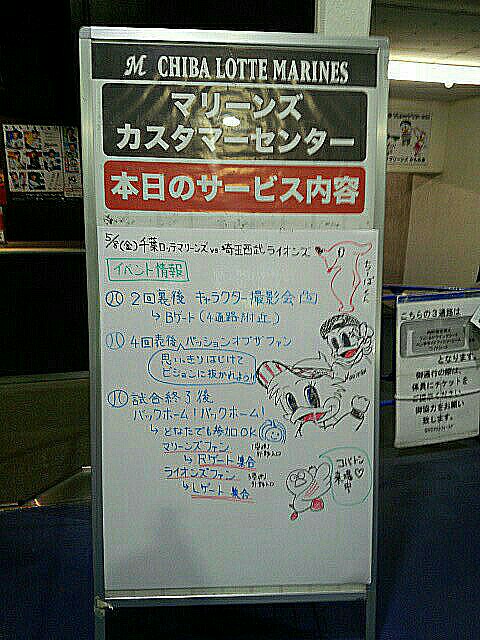 M CHIBA LOTTE MARINES
マリーンズ
カスタマーセンター
本日のサービス内容
5/8(金)千葉ロッテマリーンズ vs 埼玉西武ライオンズ
イベント情報
2回裏後 キャラクター撮影会
→Bゲート(4通路付近)
4回表後 パッションオブザファン
思いっきりはじけて
ビジョンに抜かれよう!!
試合終了後
バックホーム!バックホーム!
→どなたでも参加OK
マリーンズファン
→Rゲート集合
ライオンズファン
→Lゲート集合
コバトン
来場
中
こちらの3通路は
となります。
御通行の際は、
係員にチケットを
御協力をお願い
致します。